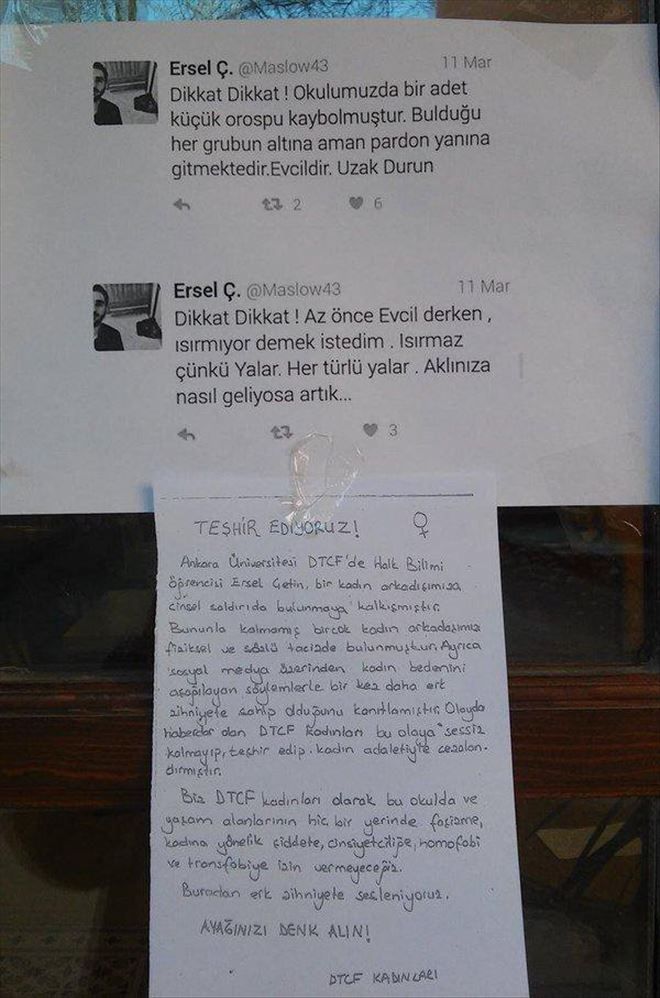 Ersel Ç. @Maslow43 11 Mar
Dikkat Dikkat ! Okulumuzda bir adet
küçük orospu kaybolmuştur. Bulduğu
her grubun altına aman pardon yanına
gitmektedir.Evcildir. Uzak Durun
2 6
Ersel Ç. @Maslow43 11 Mar
Dikkat Dikkat ! Az önce Evcil derken ,
ısırmıyor demek istedim . Isırmaz
çünkü Yalar. Her türlü yalar . Aklınıza
nasıl geliyosa artık...
3
TEŞHİR EDİYORUZ! ♀
Ankara Üniversitesi DTCF'de Halk Bilimi
öğrencisi Ersel Çetin, bir kadın arkadışımıza
cinsel saldırıda bulunmaya kalkışmıştır.
Bununla kalmamış bircok kadın arkadaşımıza
fiziksel ve sözlü tacizde bulunmuştur. Ayrıca
sosyal medya üzerinden kadın bedenini
aşağılayan söylemlerle bir kez daha erk
zihniyete sahip olduğunu kanıtlamıştır. Olayda
haberdar olan DTCF Kadınları bu olaya sessiz
kalmayıp, teşhir edip, kadın adaletiyle cezalan-
dırmıştır.
Biz DTCF kadınları olarak bu okulda ve
yaşam alanlarının hiç bir yerinde faşizme,
kadına yönelik şiddete, cinsiyetciliğe, homofobi
ve transfobiye izin vermeyeceğiz.
Buradan erk zihniyete sesleniyoruz.
AYAĞINIZI DENK ALIN!
DTCF KADINLARI